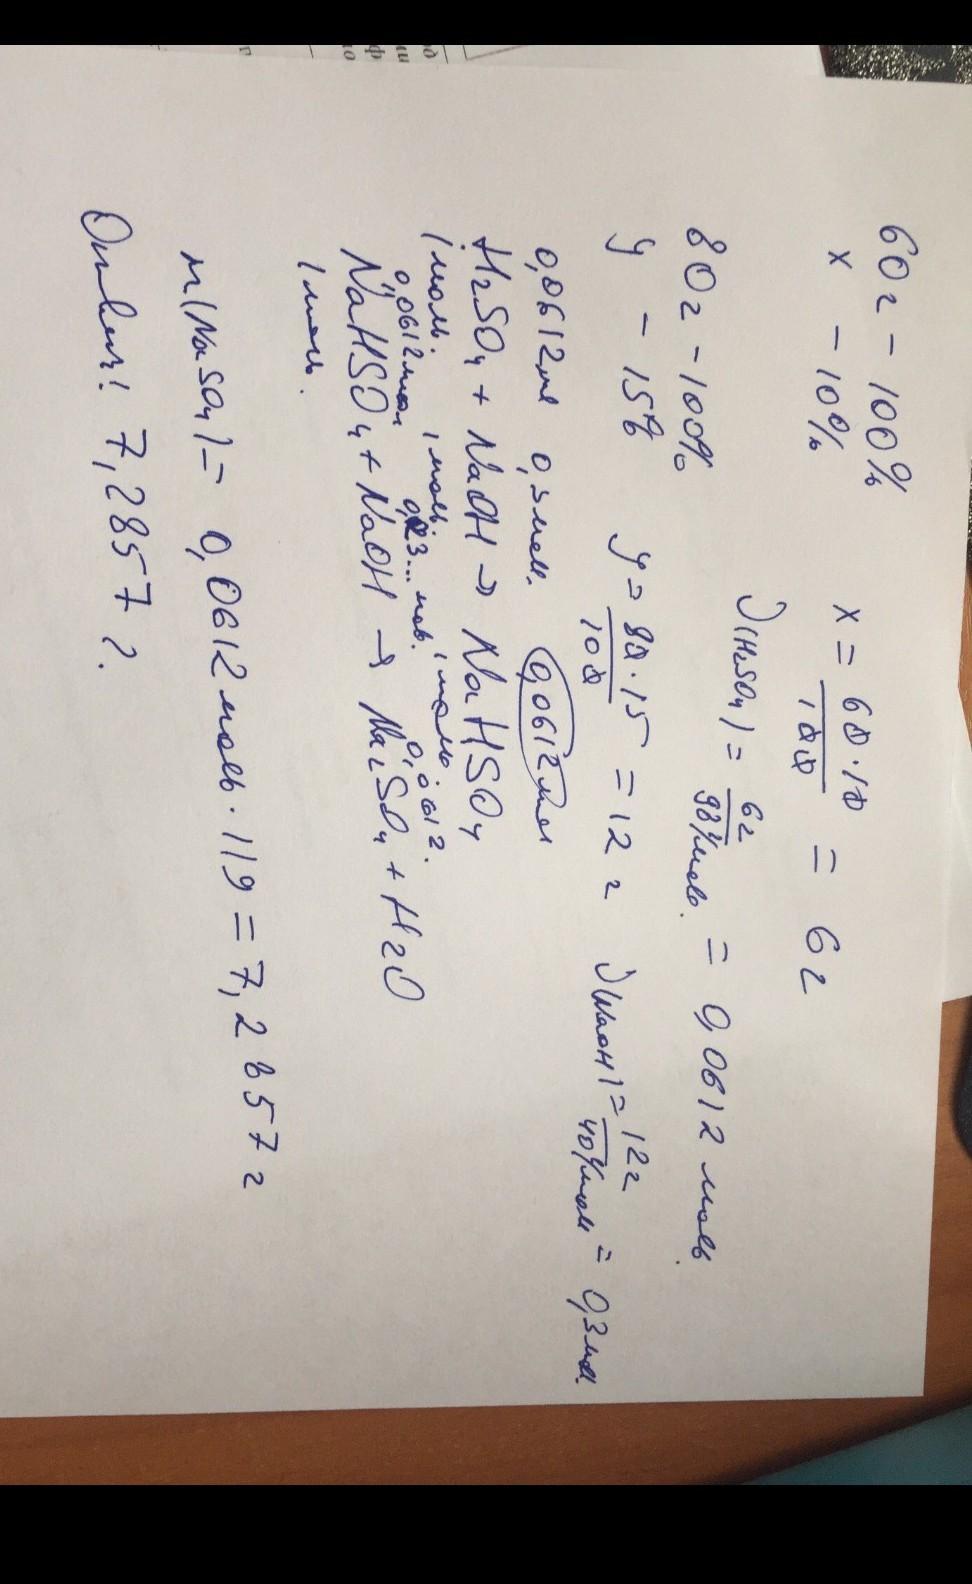 60г - 100%
x - 10%
x = 60·10/100 = 6г
ν(H₂SO₄) = 6г/98г/моль. = 0,0612 моль.
80г - 100%
y - 15%
y = 80·15/100 = 12 г
ν(NaOH) = 12г/40г/моль = 0,3мол.
0,0612мол 0,3мол. 0,0612мол
H₂SO₄ + NaOH → NaHSO₄
1моль. 1моль. 1моль
0,0612мол 0,23... мов. 0,0612.
NaHSO₄ + NaOH → Na₂SO₄ + H₂O
1моль.
m(NaSO₄) = 0,0612моль·119 = 7,2857 г
Ответ: 7,2857 г.